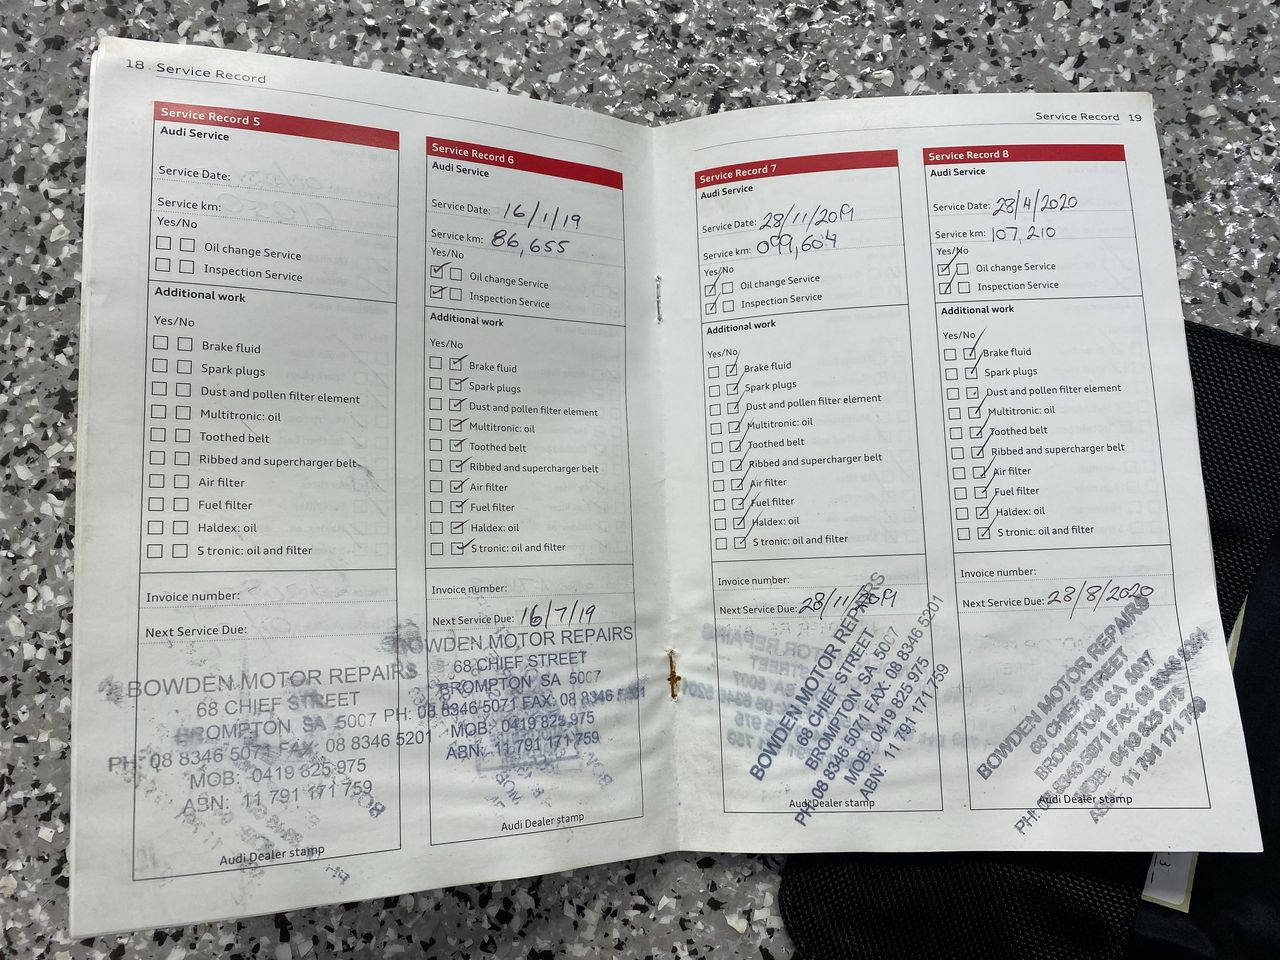 18 Service Record
Service Record 5
Audi Service
Service Date:
Service km:
Yes/No
Oil change Service
Inspection Service
Additional work
Yes/No
Brake fluid
Spark plugs
Dust and pollen filter element
Multitronic: oil
Toothed belt
Ribbed and supercharger belt
Air filter
Fuel filter
Haldex: oil
S tronic: oil and filter
Invoice number:
Next Service Due:
BOWDEN MOTOR REPAIRS
68 CHIEF STREET
BROMPTON SA 5007
PH: 08 8346 5071 FAX: 08 8346 5201
MOB: 0419 825 975
ABN: 11 791 171 759
Audi Dealer stamp
Service Record 6
Audi Service
Service Date: 16/1/19
Service km: 86,655
Yes/No
Oil change Service
Inspection Service
Additional work
Yes/No
Brake fluid
Spark plugs
Dust and pollen filter element
Multitronic: oil
Toothed belt
Ribbed and supercharger belt
Air filter
Fuel filter
Haldex: oil
S tronic: oil and filter
Invoice number:
Next Service Due: 16/7/19
BOWDEN MOTOR REPAIRS
68 CHIEF STREET
BROMPTON SA 5007
PH: 08 8346 5071 FAX: 08 8346
MOB: 0419 825 975
ABN: 11 791 171 759
Audi Dealer stamp
Service Record 19
Service Record 7
Audi Service
Service Date: 28/11/2019
Service km: 099,604
Yes/No
Oil change Service
Inspection Service
Additional work
Yes/No
Brake fluid
Spark plugs
Dust and pollen filter element
Multitronic: oil
Toothed belt
Ribbed and supercharger belt
Air filter
Fuel filter
Haldex: oil
S tronic: oil and filter
Invoice number:
Next Service Due: 28/11/2019
BOWDEN MOTOR REPAIRS
68 CHIEF STREET
BROMPTON SA 5007
PH: 08 8346 5071 FAX: 08 8346 5201
MOB: 0419 825 975
ABN: 11 791 171 759
Audi Dealer stamp
Service Record 8
Audi Service
Service Date: 28/4/2020
Service km: 107,210
Yes/No
Oil change Service
Inspection Service
Additional work
Yes/No
Brake fluid
Spark plugs
Dust and pollen filter element
Multitronic: oil
Toothed belt
Ribbed and supercharger belt
Air filter
Fuel filter
Haldex: oil
S tronic: oil and filter
Invoice number:
Next Service Due: 28/8/2020
BOWDEN MOTOR REPAIRS
68 CHIEF STREET
BROMPTON SA 5007
PH: 08 8346 5071 FAX: 08
MOB: 0419 825 975
ABN: 11 791 171 759
Audi Dealer stamp